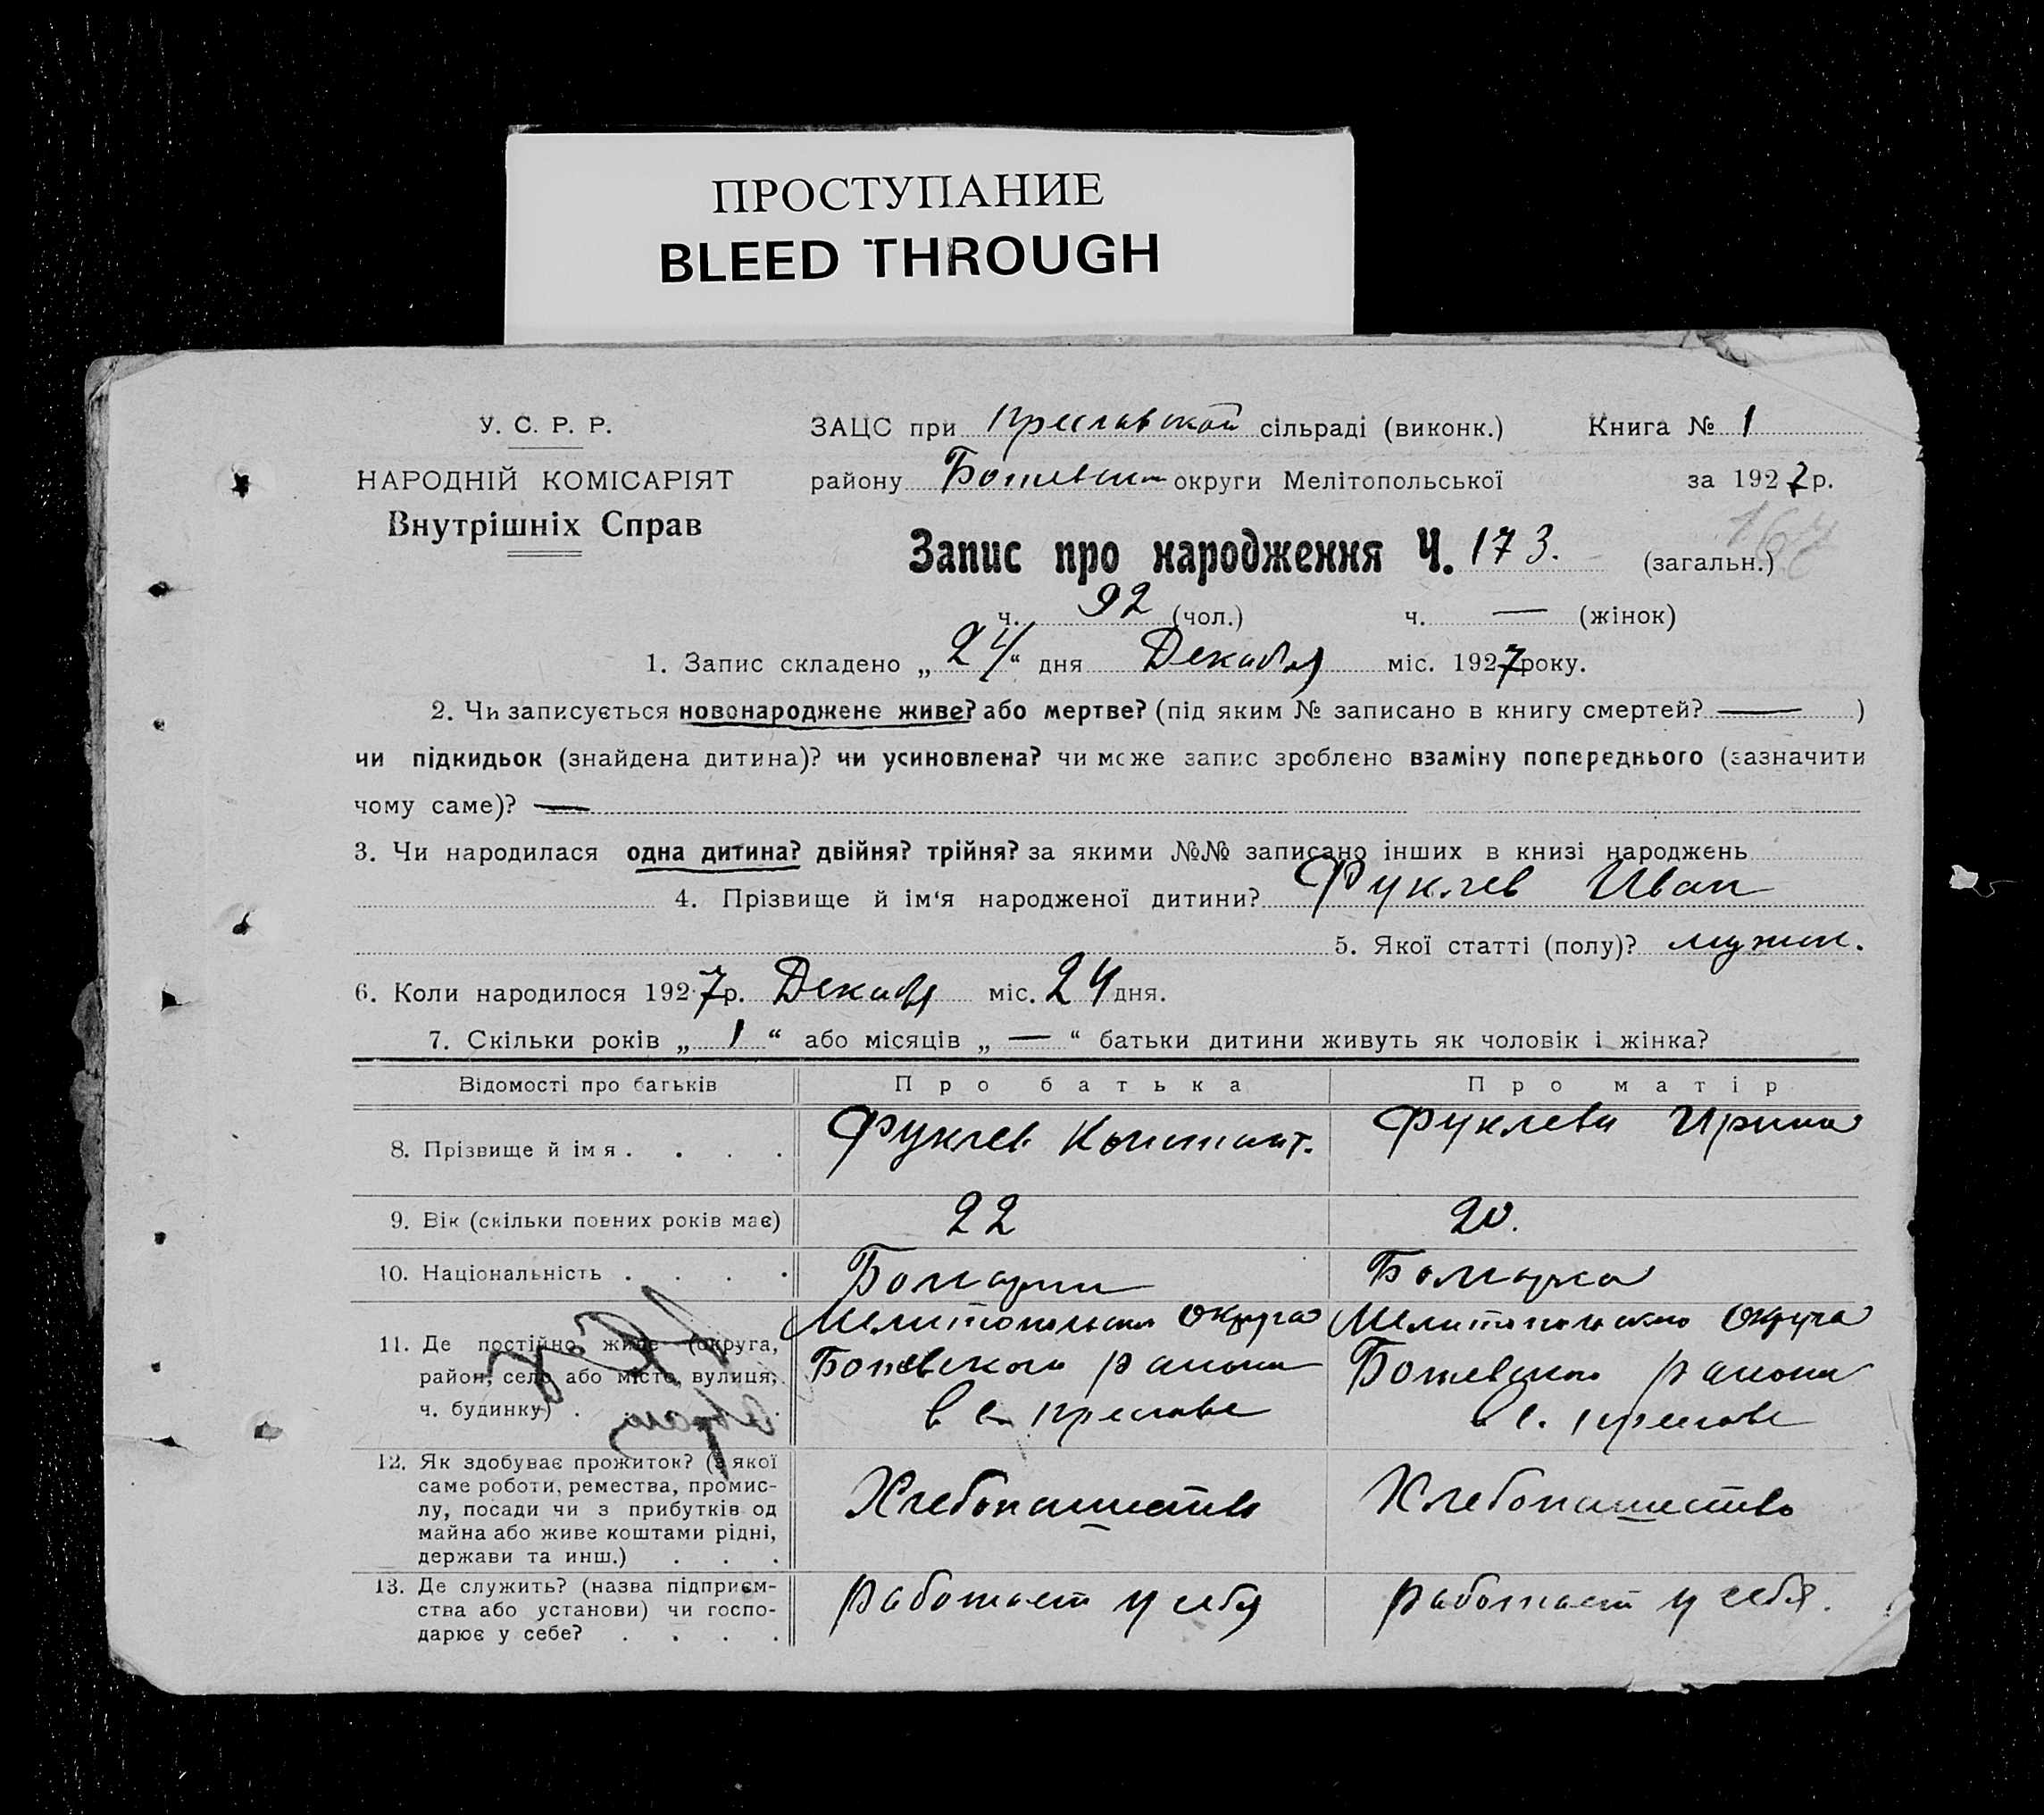 ПРОСТУПАНИЕ
BLEED THROUGH
У. С. Р. Р.
НАРОДНІЙ КОМІСАРІЯТ
Внутрішніх Справ
ЗАЦС при Преславской сільраді (виконк.) Книга № 1
району округи Мелітопольської за 1927 р.
Запис про народження Ч. 173. (загальн.)
ч. 92 (чол.) ч. — (жінок)
1. Запис складено „ 24 “ дня Декабря міс. 1927 року.
2. Чи записується новонароджене живе? або мертве? (під яким № записано в книгу смертей? — )
чи підкидьок (знайдена дитина)? чи усиновлена? чи може запис зроблено взаміну попереднього (зазначити
чому саме)? —
3. Чи народилася одна дитина? двійня? трійня? за якими №№ записано інших в книзі народжень
4. Прізвище й ім‘я народженої дитини? Фуклев Иван
5. Якої статті (полу)? мужск.
6. Коли народилося 1927 р. Декабря міс. 24 дня.
7. Скільки років „ 1 “ або місяців „ — “ батьки дитини живуть як чоловік і жінка?
Відомості про батьків Про батька Про матір
8. Прізвище й ім я . . . . Фуклев Констант. Фуклева Ирина
9. Вік (скільки повних років має) 22 20.
10. Національність . . . . Болгарин Болгарка
11. Де постійно живе (округа,
район, село або місто, вулиця,
ч. будинку) . . . .
Мелитопольского Округа
района
в с. Преславе
Мелитопольского Округа
района
в с. Преславе
12. Як здобуває прожиток? (з якої
саме роботи, ремества, промис-
лу, посади чи з прибутків од
майна або живе коштами рідні,
держави та инш.) . . .
Хлебопашество
Хлебопашество
13. Де служить? (назва підприєм-
ства або установи) чи госпо-
дарює у себе? . . . .
работает у себя
работает у себя.